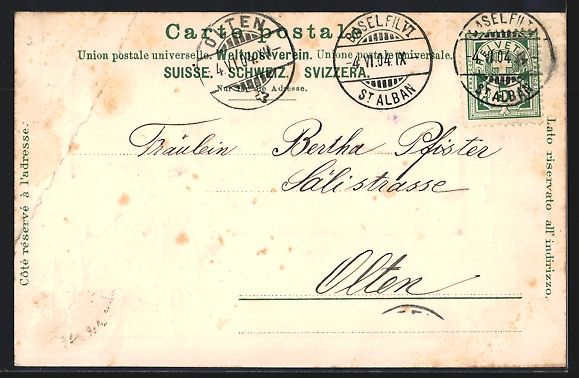 Carte postale.
Union postale universelle. Weltpostverein. Unione postale universale.
SUISSE. SCHWEIZ. SVIZZERA.
Nur für die Adresse.
OLTEN
BASEL FIL. VI
-4.VI.04.IX
ST. ALBAN
BASEL FIL. VI
-4.VI.04.IX
ST. ALBAN
HELVETIA
Fräulein Bertha Pfister
Sälistrasse
Olten
Côté réservé à l'adresse.
Lato riservato all' indirizzo.